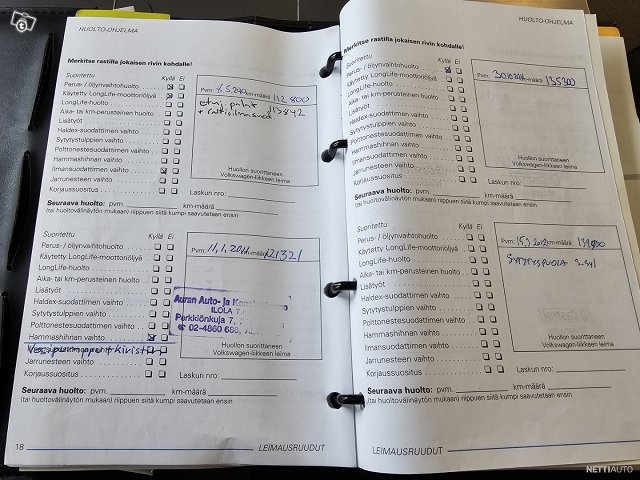 HUOLTO-OHJELMA
Merkitse rastilla jokaisen rivin kohdalle!
Suoritettu Kyllä Ei
Perus- / öljynvaihtohuolto
Käytetty LongLife-moottoriöljyä
LongLife-huolto
Aika- tai km-perusteinen huolto
Lisätyöt
Haldex-suodattimen vaihto
Sytytystulppien vaihto
Polttonestesuodattimen vaihto
Hammashihnan vaihto
Ilmansuodattimen vaihto
Jarrunesteen vaihto
Korjaussuositus
Pvm: km-määrä 112 800
etuj. palat
113842
Huollon suorittaneen
Volkswagen-liikkeen leima
Laskun nro:
Seuraava huolto: pvm. km-määrä
(tai huoltovälinäytön mukaan) riippuen siitä kumpi saavutetaan ensin
Suoritettu Kyllä Ei
Perus- / öljynvaihtohuolto
Käytetty LongLife-moottoriöljyä
LongLife-huolto
Aika- tai km-perusteinen huolto
Lisätyöt
Haldex-suodattimen vaihto
Sytytystulppien vaihto
Polttonestesuodattimen vaihto
Hammashihnan vaihto
Vesipumppu+kivisti
Jarrunesteen vaihto
Korjaussuositus
Pvm: 11,1,2011 km-määrä 121321
Auran Auto- ja
ILOLA
Perkkiönkuja 7,
☎ 02-4860 660,
Huollon suorittaneen
Volkswagen-liikkeen leima
Laskun nro:
Seuraava huolto: pvm. km-määrä
(tai huoltovälinäytön mukaan) riippuen siitä kumpi saavutetaan ensin
18
LEIMAUSRUUDUT
HUOLTO-OHJELMA
Merkitse rastilla jokaisen rivin kohdalle!
Suoritettu Kyllä Ei
Perus- / öljynvaihtohuolto
Käytetty LongLife-moottoriöljyä
LongLife-huolto
Aika- tai km-perusteinen huolto
Lisätyöt
Haldex-suodattimen vaihto
Sytytystulppien vaihto
Polttonestesuodattimen vaihto
Hammashihnan vaihto
Ilmansuodattimen vaihto
Jarrunesteen vaihto
Korjaussuositus
Pvm: km-määrä 135300
Huollon suorittaneen
Volkswagen-liikkeen leima
Laskun nro:
Seuraava huolto: pvm. km-määrä
(tai huoltovälinäytön mukaan) riippuen siitä kumpi saavutetaan ensin
Suoritettu Kyllä Ei
Perus- / öljynvaihtohuolto
Käytetty LongLife-moottoriöljyä
LongLife-huolto
Aika- tai km-perusteinen huolto
Lisätyöt
Haldex-suodattimen vaihto
Sytytystulppien vaihto
Polttonestesuodattimen vaihto
Hammashihnan vaihto
Ilmansuodattimen vaihto
Jarrunesteen vaihto
Korjaussuositus
Pvm: km-määrä
SYTYTYSPUOLA
Huollon suorittaneen
Volkswagen-liikkeen leima
Laskun nro:
Seuraava huolto: pvm. km-määrä
(tai huoltovälinäytön mukaan) riippuen siitä kumpi saavutetaan ensin
LEIMAUSRUUDUT
NETTIAUTO